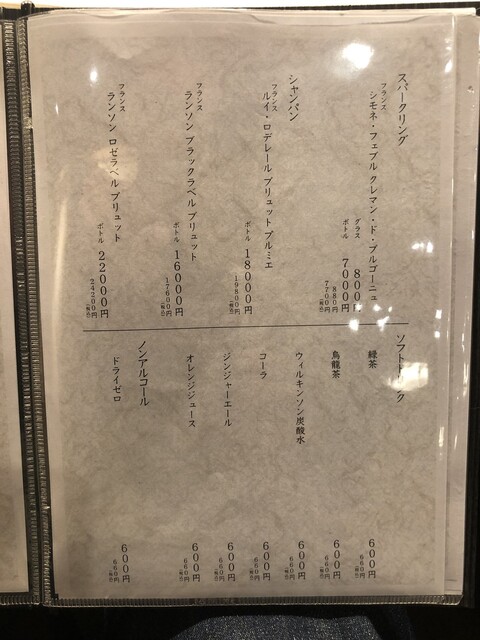 スパークリング
フランス
シモネ・フェブル クレマン・ド・ブルゴーニュ
グラス 800円
880円(税込)
ボトル 7000円
7700円(税込)
シャンパン
フランス
ルイ・ロデレール ブリュット プルミエ
ボトル 18000円
19800円(税込)
フランス
ランソン ブラックラベル ブリュット
ボトル 16000円
17600円(税込)
フランス
ランソン ロゼラベル ブリュット
ボトル 22000円
24200円(税込)
ソフトドリンク
緑茶 600円
660円(税込)
烏龍茶 600円
660円(税込)
ウィルキンソン炭酸水 600円
660円(税込)
コーラ 600円
660円(税込)
ジンジャーエール 600円
660円(税込)
オレンジジュース 600円
660円(税込)
ノンアルコール
ドライゼロ 600円
660円(税込)